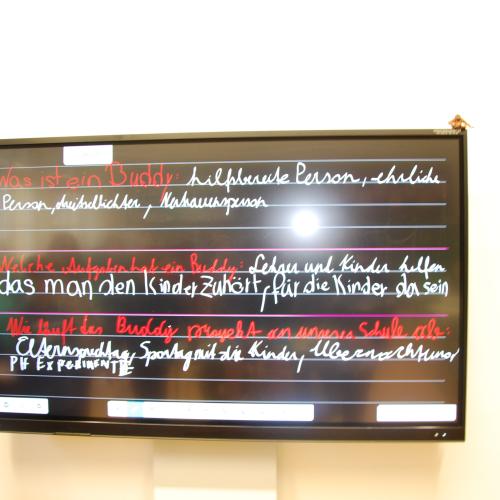 Was ist ein Buddy: hilfbereite Person, ehrliche
Person, streitschlichter, Vertrauensperson
Welche Aufgaben hat ein Buddy: Lehrer und Kinder helfen
das man den Kinder Zuhört, für die Kinder da sein
Wie läuft das Buddy proyekt an unsere Schule ab:
Elternsprechtag, Sporttag mit die Kinder, Übernachtung
PH EXPERIMENTE